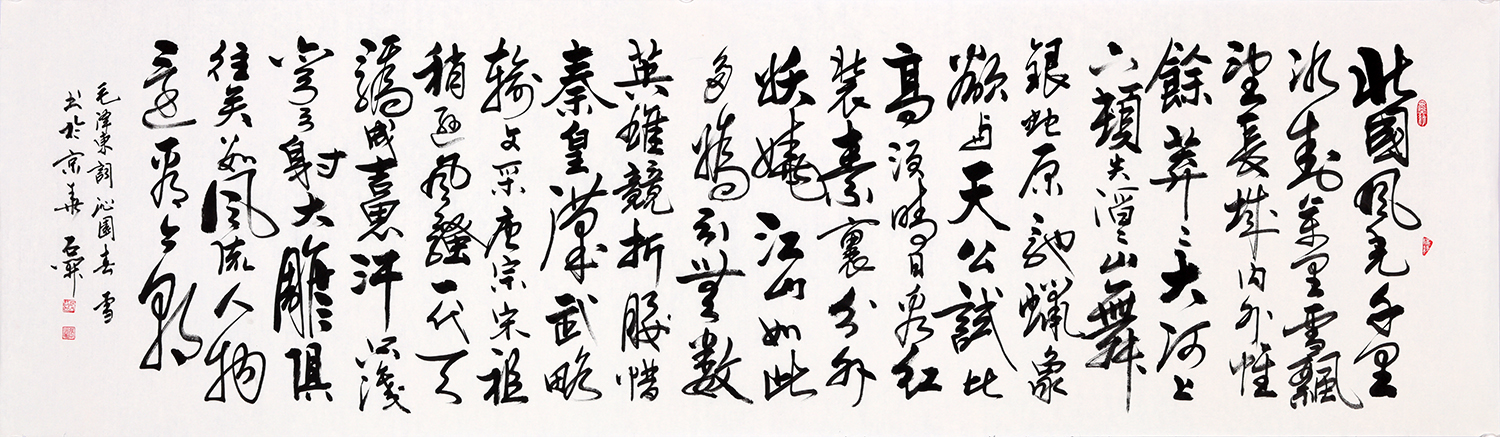 北國風光千里
冰封萬里雪飄
望長城内外惟
餘莽々大河上
下頓失滔々山舞
銀蛇原馳蠟象
欲与天公試比
高須晴日看紅
裝素裹分外
妖嬈江山如此
多嬌引無數
英雄競折腰惜
秦皇漢武略
輸文采唐宗宋祖
稍遜風騷一代天
驕成吉思汗只識
彎弓射大雕俱
往矣数風流人物
還看今朝
毛澤東詞沁園春雪
书於京華